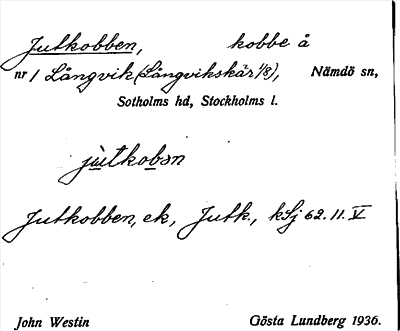 Jutkobben, kobbe å
nr 1 Långvik (Långvikskär 1/8), Nämdö sn,
Sotholms hd, Stockholms l.
jùtkobən
Jutkobben, ek, Jutk., kSj 62.11.V
John Westin Gösta Lundberg 1936.